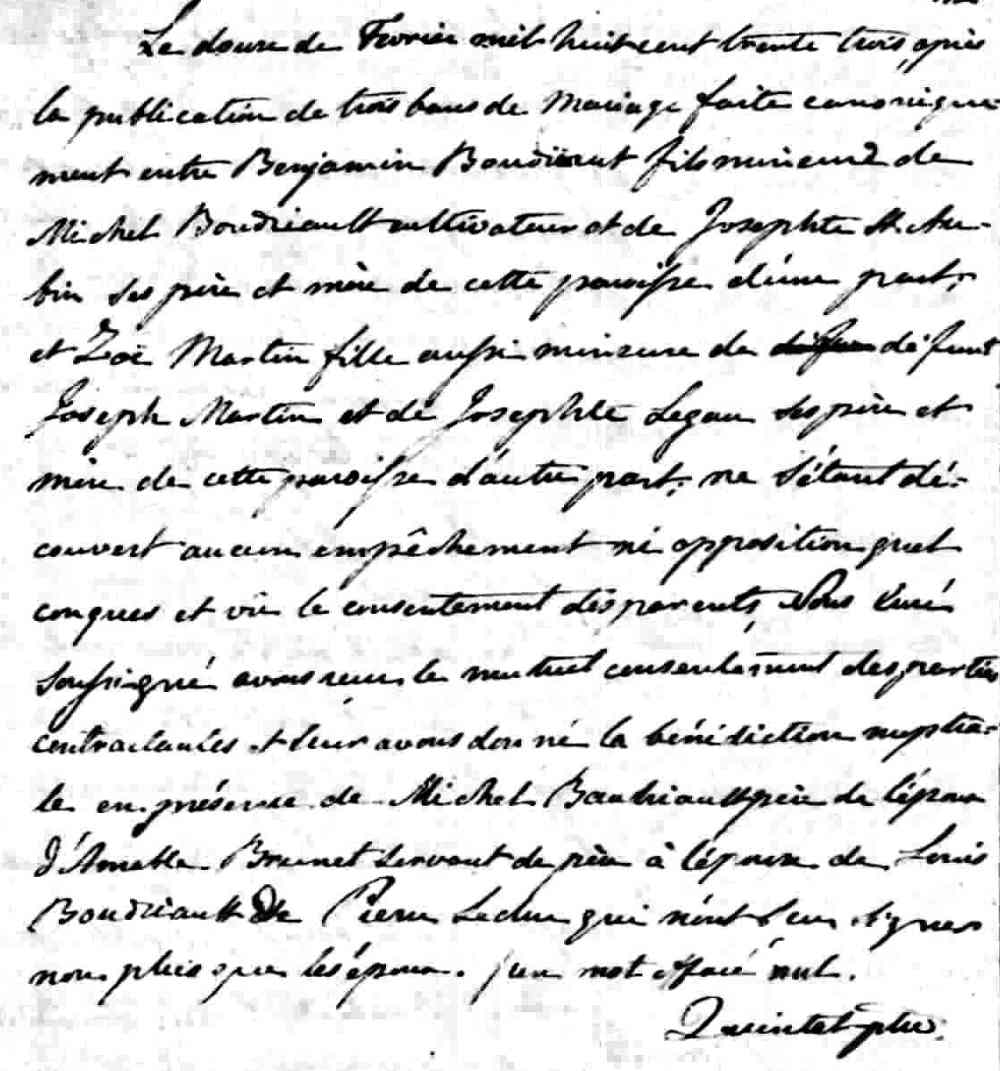 Le douze de Fevrier mil huit cent trente trois, après
la publication de trois bans de Mariage faite canonique-
ment entre Benjamin Boudriaut fils mineur de
Michel Boudriault cultivateur et de Josephte St. Au-
bin ses père et mère de cette paroisse d'une part;
et Zoë Martin fille aussi mineure de defun défunt
Joseph Martin et de Josephte Legau ses père et
mère de cette paroisse d'autre part; ne s'étant dé-
couvert aucun empêchement ni opposition quel
conques et vu le consentement des parents, Nous Curé
soussigné avons reçu le mutuel consentement des parties
contractantes et leur avons donné la bénédiction nuptia-
le en présence de Michel Boudriault père de l'époux
d'Amable Brunet servant de père à l'épouse de Louis
Boudriault de Pierre Leduc qui n'ont seu signer
non plus que les époux. un mot effacé nul.
Quintal ptre.